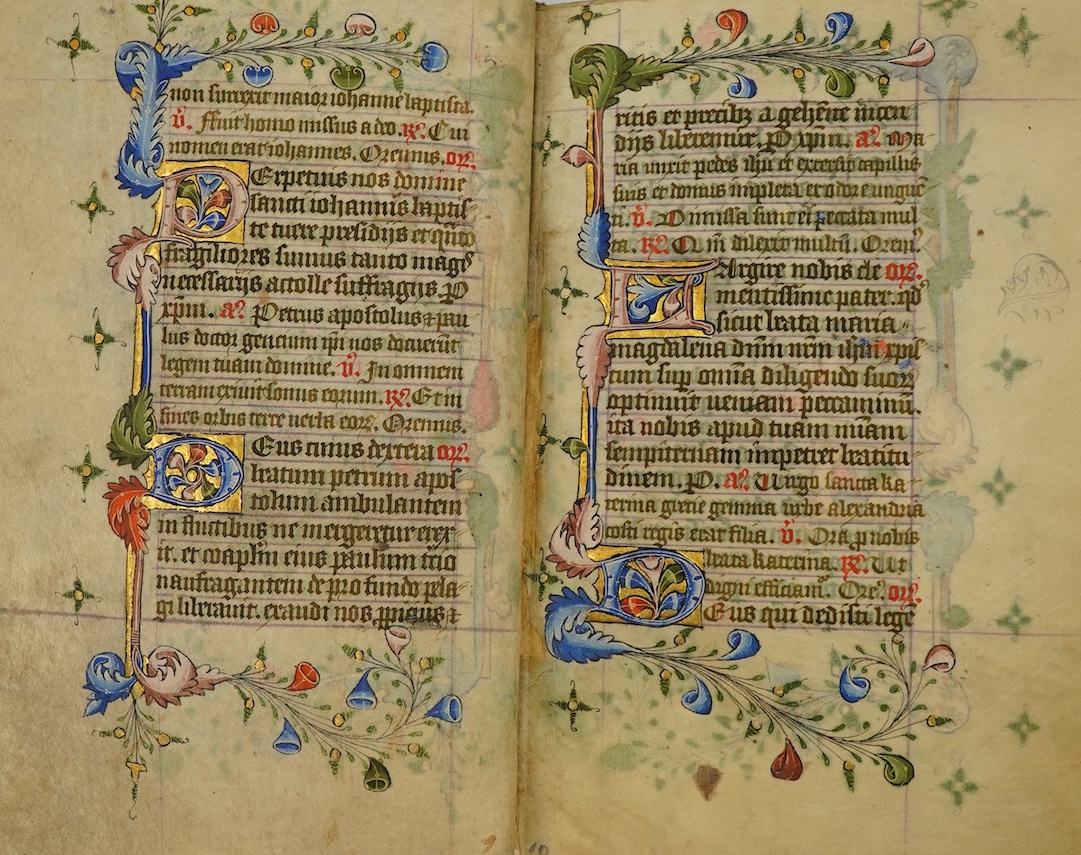 non surrexit maior iohanne baptista.
v̄. ffuit homo missus a deo. R̄. Cui
nomen erat iohannes. Oremus. or̄.
Perpetuis nos domine
sancti iohannis baptis
te tuere presidijs et quāto
fragiliores sumus tanto magꝭ
necessarijs attolle suffragijs. P
xp̄m. a. Petrus apostolus ⁊ pau
lus doctor gencium ip̄i nos docuerūt
legem tuam domine. v̄. In omnem
terram exiuit sonus eorum. R̄. Et in
fines orbis terre uerba eorꝝ. Oremus.
Deus cuius dextera or̄.
beatum petrum apos
tolum ambulantem
in fluctibus ne mergeretur erex
it. et coapl̄m eius paulum tercio
naufragantem de profundo pela
gi liberauit. exaudi nos propicius ⁊
ritis et precibꝫ a gehēne incen
dijs liberemur. P xp̄m. a. Ma
ria unxit pedes ih̄u et extersit capillis
suis et domus impleta et odore unguē
ti. v̄. Dimissa sunt ei peccata mul
ta. R̄. Qm̄ dilexit multū. Orem̄.
Largire nobis cle or̄.
mentissime pater. qd̄
sicut beata maria
magdalena dn̄m nr̄m ih̄m xpis
tum sup̄ omīa diligendo suoꝝ
optinuit ueniam peccaminū.
ita nobis apud tuam mīam
sempiternam impetret beatitu
dinem. P. a. Uirgo sancta ka
terina grecie gemma urbe alexandria
costi regis erat filia. v̄. Ora ꝓ nobis
beata katerina. R̄. Ut
digni efficiam̄. Ore. or̄.
Deus qui dedisti legē